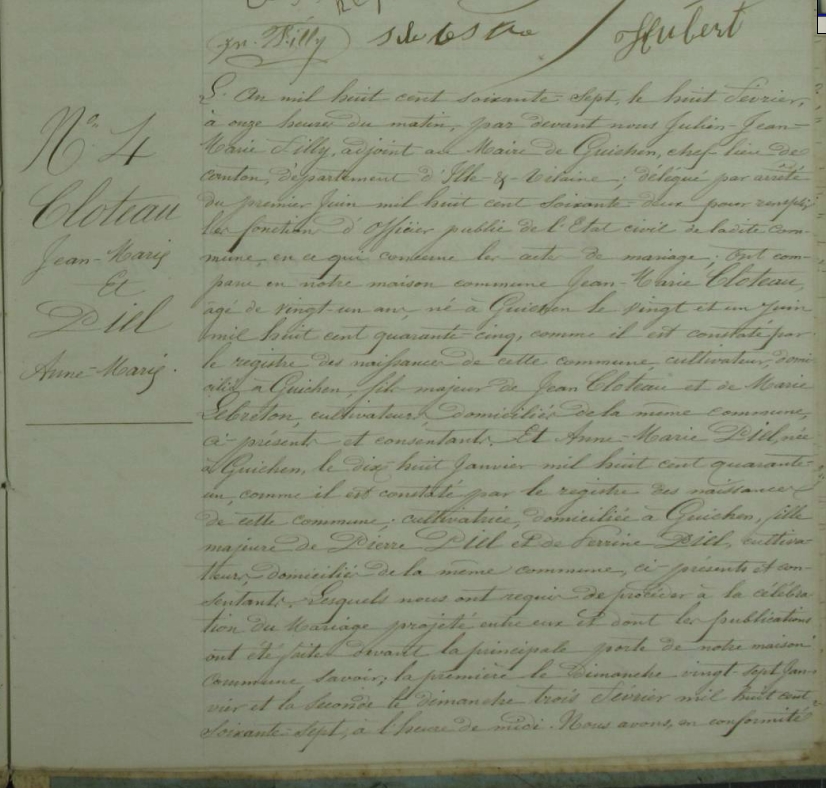 Tilly
Hubert
N° 4
Cloteau
Jean-Marie
Et
Piel
Anne-Marie.
L'An mil huit cent soixante-sept, le huit Février,
à onze heures du matin, par devant nous Julien-Jean-
Marie Tilly, adjoint au Maire de Guichen, chef-lieu de
canton, département d'Ille-&-Vilaine; délégué par arrêté
du premier Juin mil huit cent soixante-deux pour remplir
les fonctions d'Officier public de l'Etat civil de ladite com-
mune, en ce qui concerne les actes de mariage; Ont com-
paru en notre maison commune Jean-Marie Cloteau,
âgé de vingt-un ans, né à Guichen le vingt et un Juin
mil huit cent quarante-cinq, comme il est constaté par
le registre des naissances de cette commune, cultivateur, domi-
cilié à Guichen, fils majeur de Jean Cloteau et de Marie
Lebreton, cultivateurs, domiciliés de la même commune,
ci-présents et consentants. Et Anne-Marie Piel, née
à Guichen, le dix-huit Janvier mil huit cent quarante-
un, comme il est constaté par le registre des naissances
de cette commune, cultivatrice, domiciliée à Guichen, fille
majeure de Pierre Piel et de Perrine Piel, cultiva-
teurs, domiciliés de la même commune, ci-présents et con-
sentants. Lesquels nous ont requis de procéder à la célébra-
tion du Mariage projeté entre eux et dont les publications
ont été faites devant la principale porte de notre maison
commune savoir; la première le Dimanche vingt-sept Jan-
vier et la seconde le dimanche trois Février mil huit cent
soixante-sept, à l'heure de midi. Nous avons, en conformité